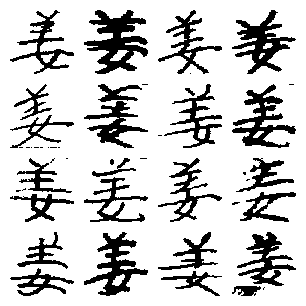 姜姜姜姜
姜姜姜姜
姜姜姜姜
姜姜姜姜